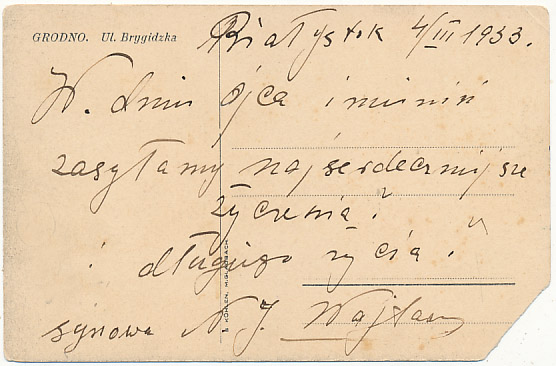 GRODNO. Ul. Brygidzka
Białystok 4/III 1933.
W. dniu ojca imienin
zasyłamy najserdeczniejsze
życzenia
i długiego życia.
synowa N. J.
L. KOHLEN, M. GLADBACH